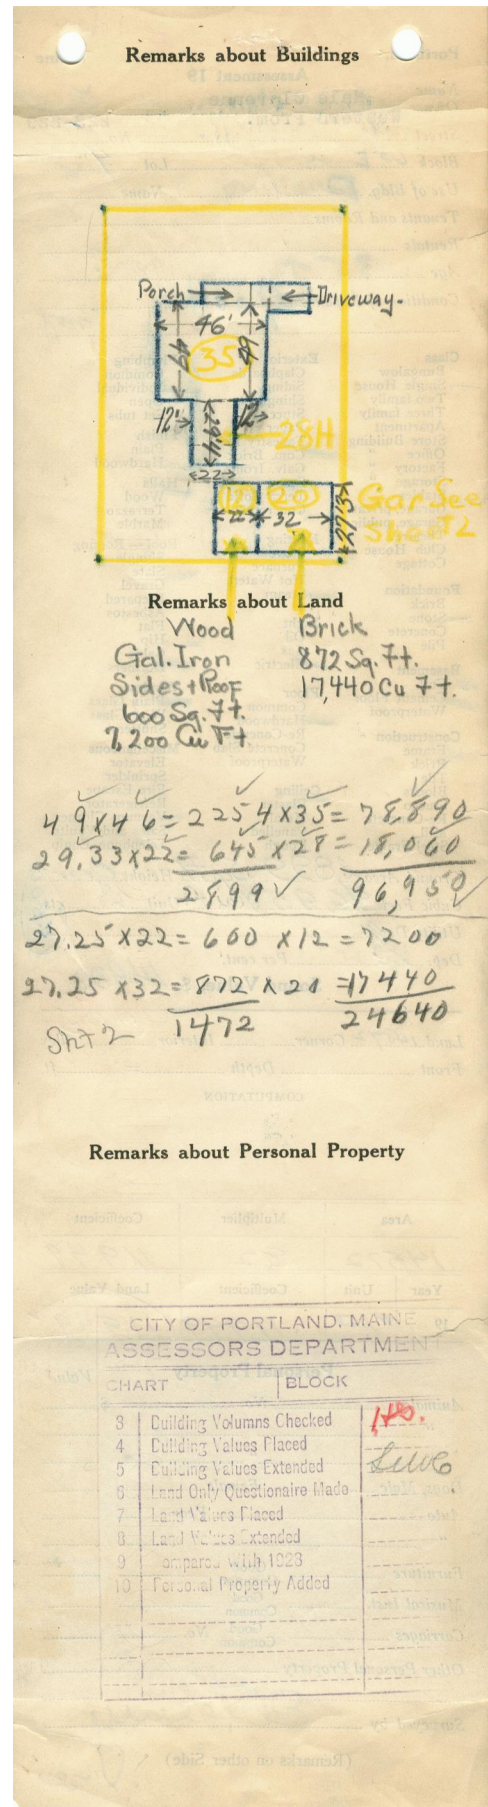 Remarks about Buildings
Porch
Driveway-
46'
49
35
49
12'
29'4
12'
28H
22
12
20
Gar See
Sheet 2
22
32
27'3
Remarks about Land
Wood
Gal. Iron
Sides + Roof
600 Sq. Ft.
7,200 Cu Ft
Brick
872 Sq. Ft.
17,440 Cu Ft.
49 x 46 = 2254 x 35 = 78,890
29.33 x 22 = 645 x 28 = 18,060
2899 96,950
27.25 x 22 = 600 x 12 = 7200
27.25 x 32 = 872 x 20 = 17440
1472 24640
Sht 2
Remarks about Personal Property
CITY OF PORTLAND, MAINE
ASSESSORS DEPARTMENT
CHART BLOCK
3 Building Volumns Checked
4 Building Values Placed
5 Building Values Extended
6 Land Only Questionaire Made
7 Land Values Placed
8 Land Values Extended
9 ompared With 1923
10 Personal Property Added